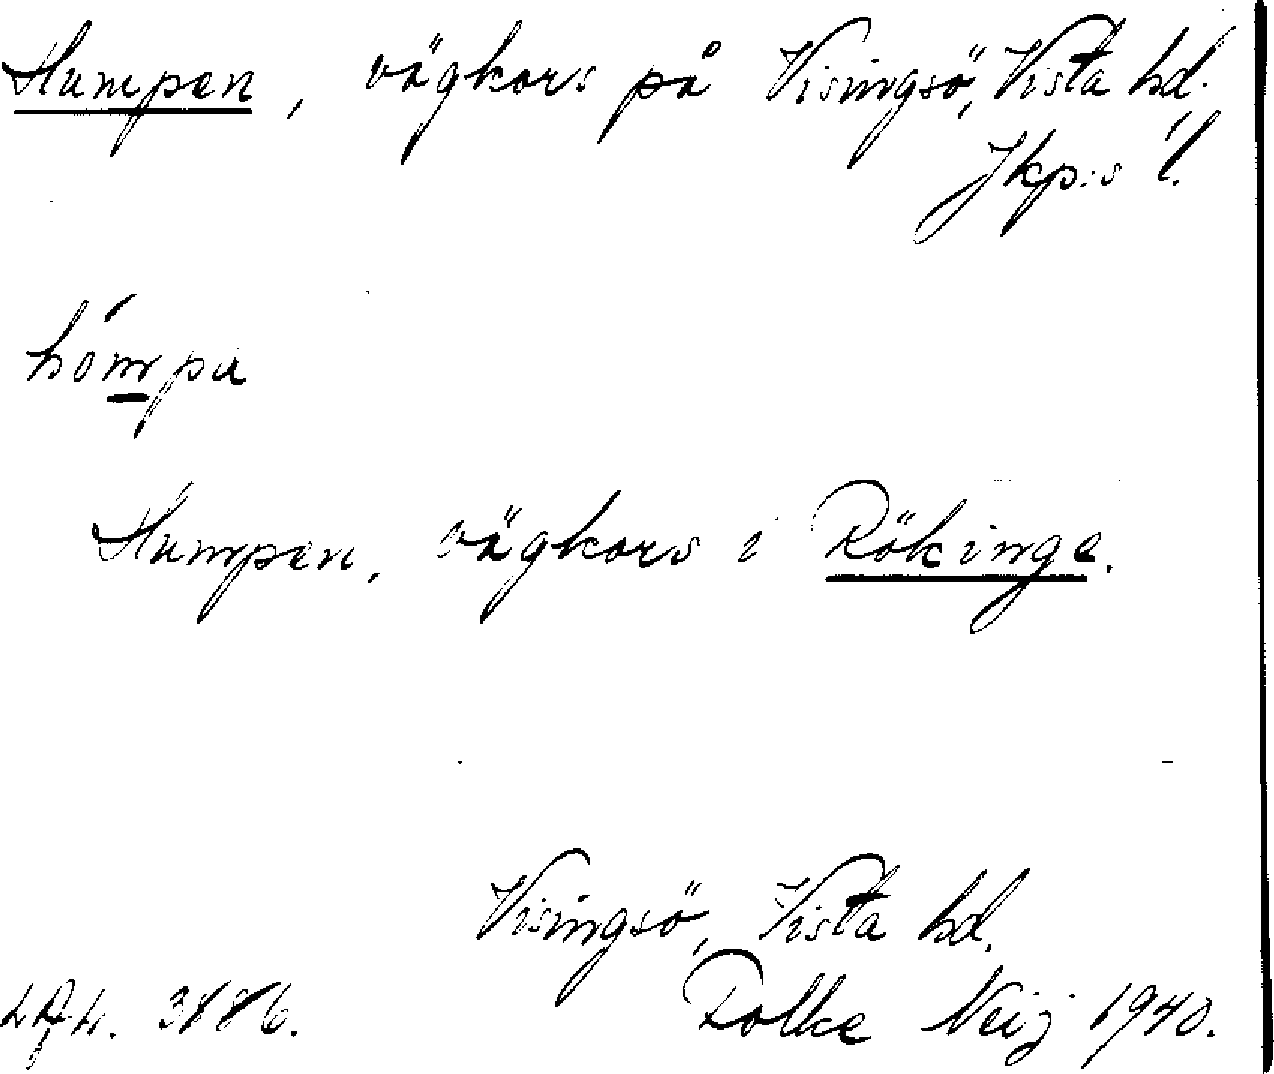 Humpen, vägkors på Visingsö, Vista hd.
Jkp:s l.
hómpa
Humpen, vägkors i Rökinge.
Visingsö, Vista hd.
3886. Folke Neij 1940.